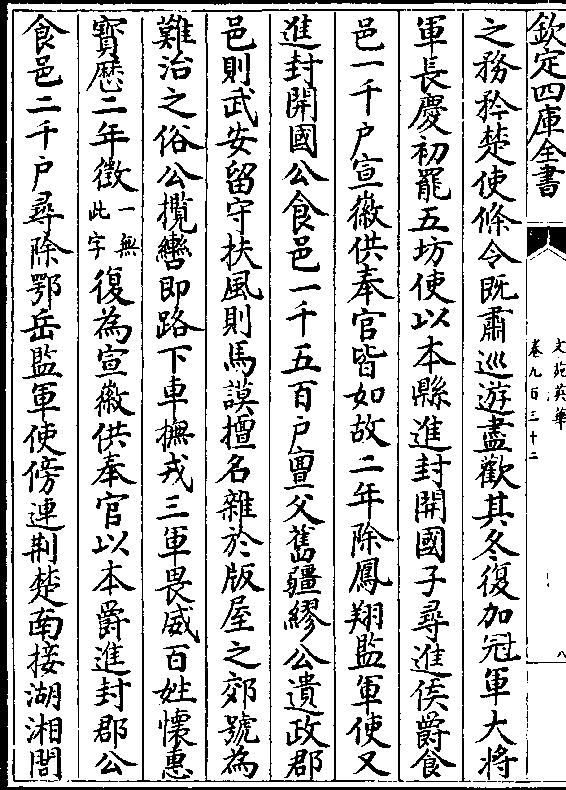 欽定四庫全書
文苑英華
卷九百三十二
八
之務矜楚使條令既肅巡遊盡歡其冬復加冠軍大將
軍長慶初罷五坊使以本縣進封開國子尋進侯爵食
邑一千户宣徽供奉官皆如故二年除鳳翔監軍使又
進封開國公食邑一千五百户亶父舊疆繆公遺政郡
邑則武安留守扶風則馬謨擅名雜於版屋之郊號為
難治之俗公攬轡即路下車撫戎三軍畏威百姓懷惠
寳厯二年徴一無此字復為宣徽供奉官以本爵進封郡公
食邑二千户尋除鄂岳監軍使傍連荆楚南接湖湘閭